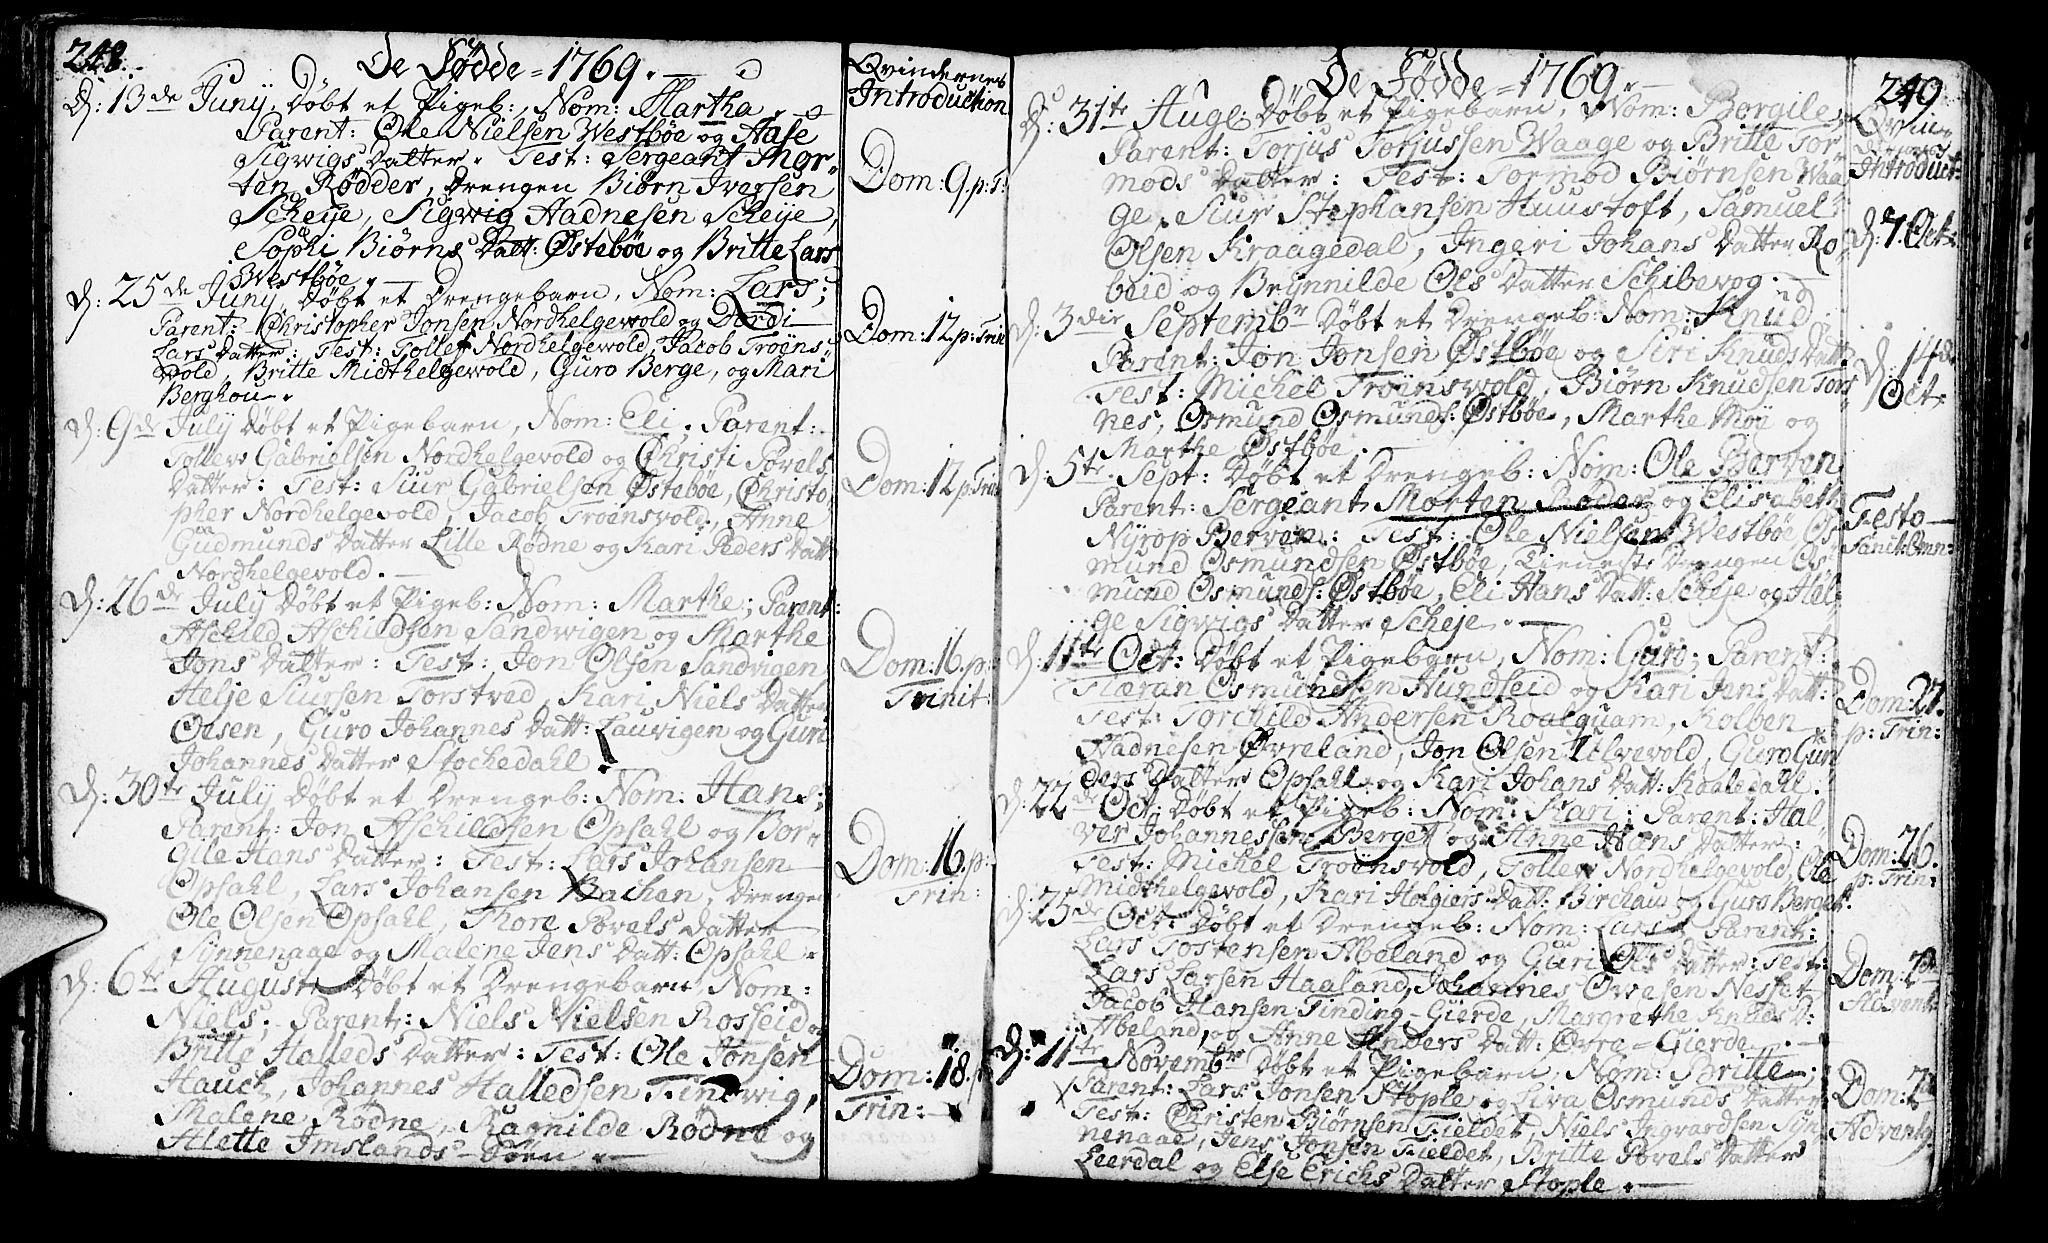 248.
De Fødde = 1769.
Qvindernes
Introduction
D: 13de Junij, Døbt et Pigeb:, Nom: Martha
Parent: Ole Nielsen Westbøe og Aase
Sigwigs Datter. Test: Sergeant Mor-
ten Rødder, Drengen Biørn Iversen
Scheje, Sigwig Aadnesen Scheije,
Sophi Biørns Datt: Østebøe og Britte Lars
Westbøe.
Dom: 9 p: T:
D: 25de Junij, Døbt et Drengebarn, Nom: Lars;
Parent: Christopher Jonsen Nordhelgewold og Dordi
Lars Datter: Test: Tollef Nordhelgewold, Jacob Troens-
wold, Britte Midthelgewold, Guro Berge, og Mari
Berghou.
Dom: 12 p: Trin
D: 9de July Døbt et Pigebarn, Nom: Eli. Parent:
Tollev Gabrielsen Nordhelgevold og Christi Povels
Datter: Test: Siur Gabrielsen Østebøe, Christo-
pher Nordhelgevold, Jacob Troensvold, Anne
Gudmunds Datter Lille Rødne og Kari Peders Datt:
Nordhelgevold.
Dom: 12 p: Trin
D: 26de July Døbt et Pigeb: Nom: Marthe; Parent:
Aschild Aschildsen Sandwigen og Marthe
Jons Datter: Test: Jon Olsen Sandvigen
Helje Siursen Torstved, Kari Niels Datter
Olsen, Guro Johannes Datt: Lauvigen og Guri
Johannes Datter Stochedahl.
Dom: 16. p:
Trinit:
D: 30te July Døbt et Drengeb: Nom: Hans;
Parent: Jon Aschildsen Opsahl og Bor-
gile Hans Datter: Test: Lars Johansen
Opsahl, Lars Johansen Bachen, Drengen
Ole Olsen Opsahl, Thore Povels Datter
Synnenaae og Malene Jens Datt: Opsahl.
Dom: 16. p:
Trin:
D: 6te Auguste Døbt et Drengebarn Nom:
Niels; Parent: Niels Nielsen Rosseid og
Britte Halleds Datter: Test: Ole Jonsen
Hauch, Johannes Halledsen Findwig,
Malene Rødne, Ragnilde Rødne og
Alette Imslands-Tøen.
Dom: 18. p
Trin:
De Fødde = 1769.
249
Qvin-
dernes
Introduct:
D: 31te Aug: Døbt et Pigebarn, Nom: Borgile,
Parent: Torjus Torjussen Waage og Britte Tor-
mods Datter: Test: Tormod Biørnsen Waa-
ge, Siur Stephansen Huustoft, Samuel
Olsen Kraagedal, Ingeri Johans Datter Ro-
beid og Brynnilde Ols Datter Schibevog.
D: 7. Oct:
D: 3die Septembr Døbt et Drengeb: Nom: Knud
Parent: Jon Jonsen Østbøe og Siri Knuds Datt
Test: Michel Troensvold, Biørn Knudsen Tors-
nes, Osmund Osmunds: Østbøe, Marthe Møe og
Marthe Østbøe.
D: 14de
Oct:
D: 5te Sept: Døbt et Drengeb: Nom: Ole Berven
Parent: Sergeant Morten Røder og Elisabeth
Nyrop Berven: Test: Ole Nielsen Westbøe, Os-
mund Osmundsen Østbøe, Tieneste Drengen Os-
mund Osmunds: Østbøe, Eli Hans Datt: Scheje og Hel-
ge Sigwigs Datter Scheje.
Festo
Sanct: Omn:
D: 11te Oct: Døbt et Pigebarn, Nom: Guro; Parent:
Tiæran Osmundsen Hundseid og Kari Jens Datt:
Test: Torchild Andersen Roalquam, Kolben
Aadnesen Øvreland, Jon Olsen Ulvevold, Guro Gun-
ders Datter Opsahl og Kari Johans Datt: Kaaledahl.
Dom: 27.
p: Trin:
D: 22de Oct: Døbt et Pigeb: Nom: Kari; Parent: Hal-
ver Johannessen Berget og Anne Hans Datter:
Test: Michel Troensvold, Tollev Nordhelgevold, Ole
Midthelgevold, Kari Holgiers Datt: Birchau og Guro Berget.
Dom: 26.
p: Trin:
D: 25de Oct: Døbt et Drengeb: Nom: Lars; Parent:
Lars Tostensen Abeland og Guri Ols Datter: Test:
Lars Larsen Haaland, Johannes Owesen Nesset
Jacob Hansen Tinding-Gierde, Margrethe Knuds D:
Abeland, og Anne Anders Datt: Øvre-Gierde.
Dom: 2de
Advent:
D: 11te Novembr Døbt et Pigebarn, Nom: Britte;
Parent: Lars Jonsen Stople og Siva Osmunds Datter
Test: Christen Biørnsen Fieldet, Niels Ingvardsen Syn-
nenaae, Jens Jonsen Fieldet, Britte Povels Datter
Leerdal og Else Erichs Datter Stople.
Dom: 2de
Advent